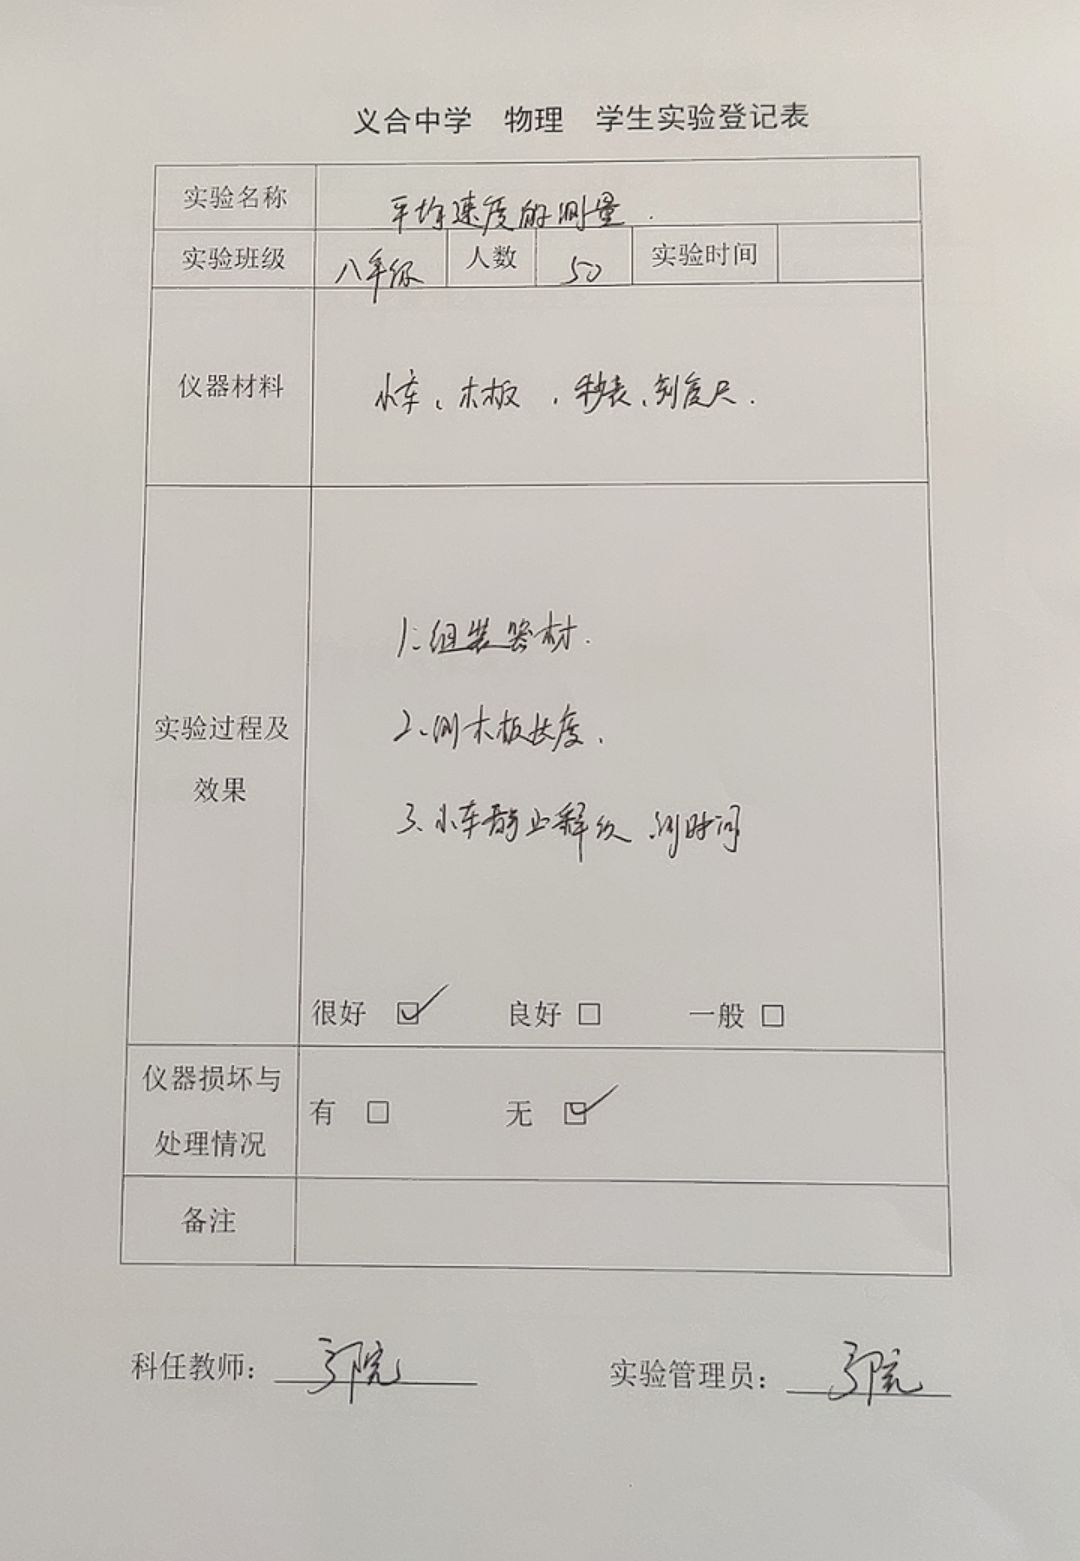 义合中学 物理 学生实验登记表
实验名称 平均速度的测量.
实验班级 八年级 人数 50 实验时间
仪器材料 小车、木板、秒表、刻度尺.
1.组装器材.
2、测木板长度.
实验过程及
效果
3、小车静止释放 测时间
很好 ☑ 良好 □ 一般 □
仪器损坏与
处理情况
有 □ 无 ☑
备注
科任教师: 实验管理员: